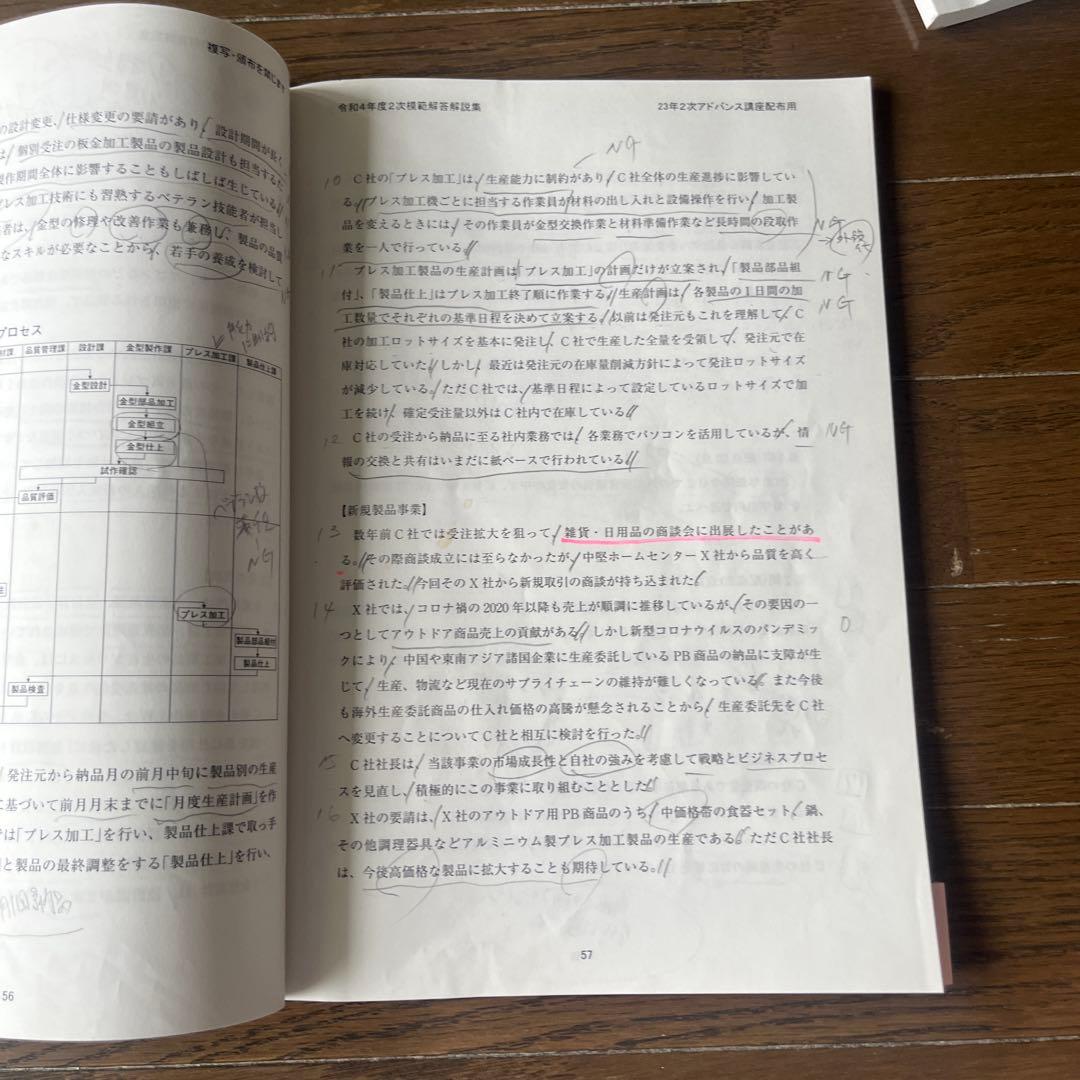 複写・頒布を禁じます
の設計変更、仕様変更の要請があり、設計期間が長く、
は、個別受注の板金加工製品の製品設計も担当するた
製作期間全体に影響することもしばしば生じている。
プレス加工技術にも習熟するベテラン技能者が担当し
者は、金型の修理や改善作業も兼務し、製品の品質
なスキルが必要なことから、若手の養成を検討して
プロセス
材課 品質管理課 設計課 金型製作課 プレス加工課 製品仕上課
金型設計
金型部品加工
金型組立
金型仕上
試作確認
品質評価
ベテラン
NG
プレス加工
製品部品組付
製品仕上
製品検査
発注元から納品月の前月中旬に製品別の生産
に基づいて前月月末までに「月度生産計画」を作
では「プレス加工」を行い、製品仕上課で取っ手
と製品の最終調整をする「製品仕上」を行い、
56
令和4年度2次模範解答解説集 23年2次アドバンス講座配布用
NG
10 C社の「プレス加工」は、生産能力に制約があり、C社全体の生産進捗に影響してい
る。プレス加工機ごとに担当する作業員が材料の出し入れと設備操作を行い、加工製
品を変えるときには、その作業員が金型交換作業と材料準備作業など長時間の段取作
業を一人で行っている。
NG
11 プレス加工製品の生産計画は「プレス加工」の計画だけが立案され、「製品部品組
付」、「製品仕上」はプレス加工終了順に作業する。生産計画は、各製品の1日間の加
工数量でそれぞれの基準日程を決めて立案する。以前は発注元もこれを理解して、C
社の加工ロットサイズを基本に発注し、C社で生産した全量を受領して、発注元で在
庫対応していた。しかし、最近は発注元の在庫量削減方針によって発注ロットサイズ
が減少している。ただC社では、基準日程によって設定しているロットサイズで加
工を続け、確定受注量以外はC社内で在庫している。
NG
NG
12 C社の受注から納品に至る社内業務では、各業務でパソコンを活用しているが、情
報の交換と共有はいまだに紙ベースで行われている。
NG
【新規製品事業】
13 数年前C社では受注拡大を狙って、雑貨・日用品の商談会に出展したことがあ
る。その際商談成立には至らなかったが、中堅ホームセンターX社から品質を高く
評価された。今回そのX社から新規取引の商談が持ち込まれた。
14 X社では、コロナ禍の2020年以降も売上が順調に推移しているが、その要因の一
つとしてアウトドア商品売上の貢献がある。しかし新型コロナウイルスのパンデミッ
クにより、中国や東南アジア諸国企業に生産委託しているPB商品の納品に支障が生
じて、生産、物流など現在のサプライチェーンの維持が難しくなっている。また今後
も海外生産委託商品の仕入れ価格の高騰が懸念されることから、生産委託先をC社
へ変更することについてC社と相互に検討を行った。
O
15 C社社長は、当該事業の市場成長性と自社の強みを考慮して戦略とビジネスプロセ
スを見直し、積極的にこの事業に取り組むこととした。
16 X社の要請は、X社のアウトドア用PB商品のうち、中価格帯の食器セット、鍋、
その他調理器具などアルミニウム製プレス加工製品の生産である。ただC社社長
は、今後高価格な製品に拡大することも期待している。
57